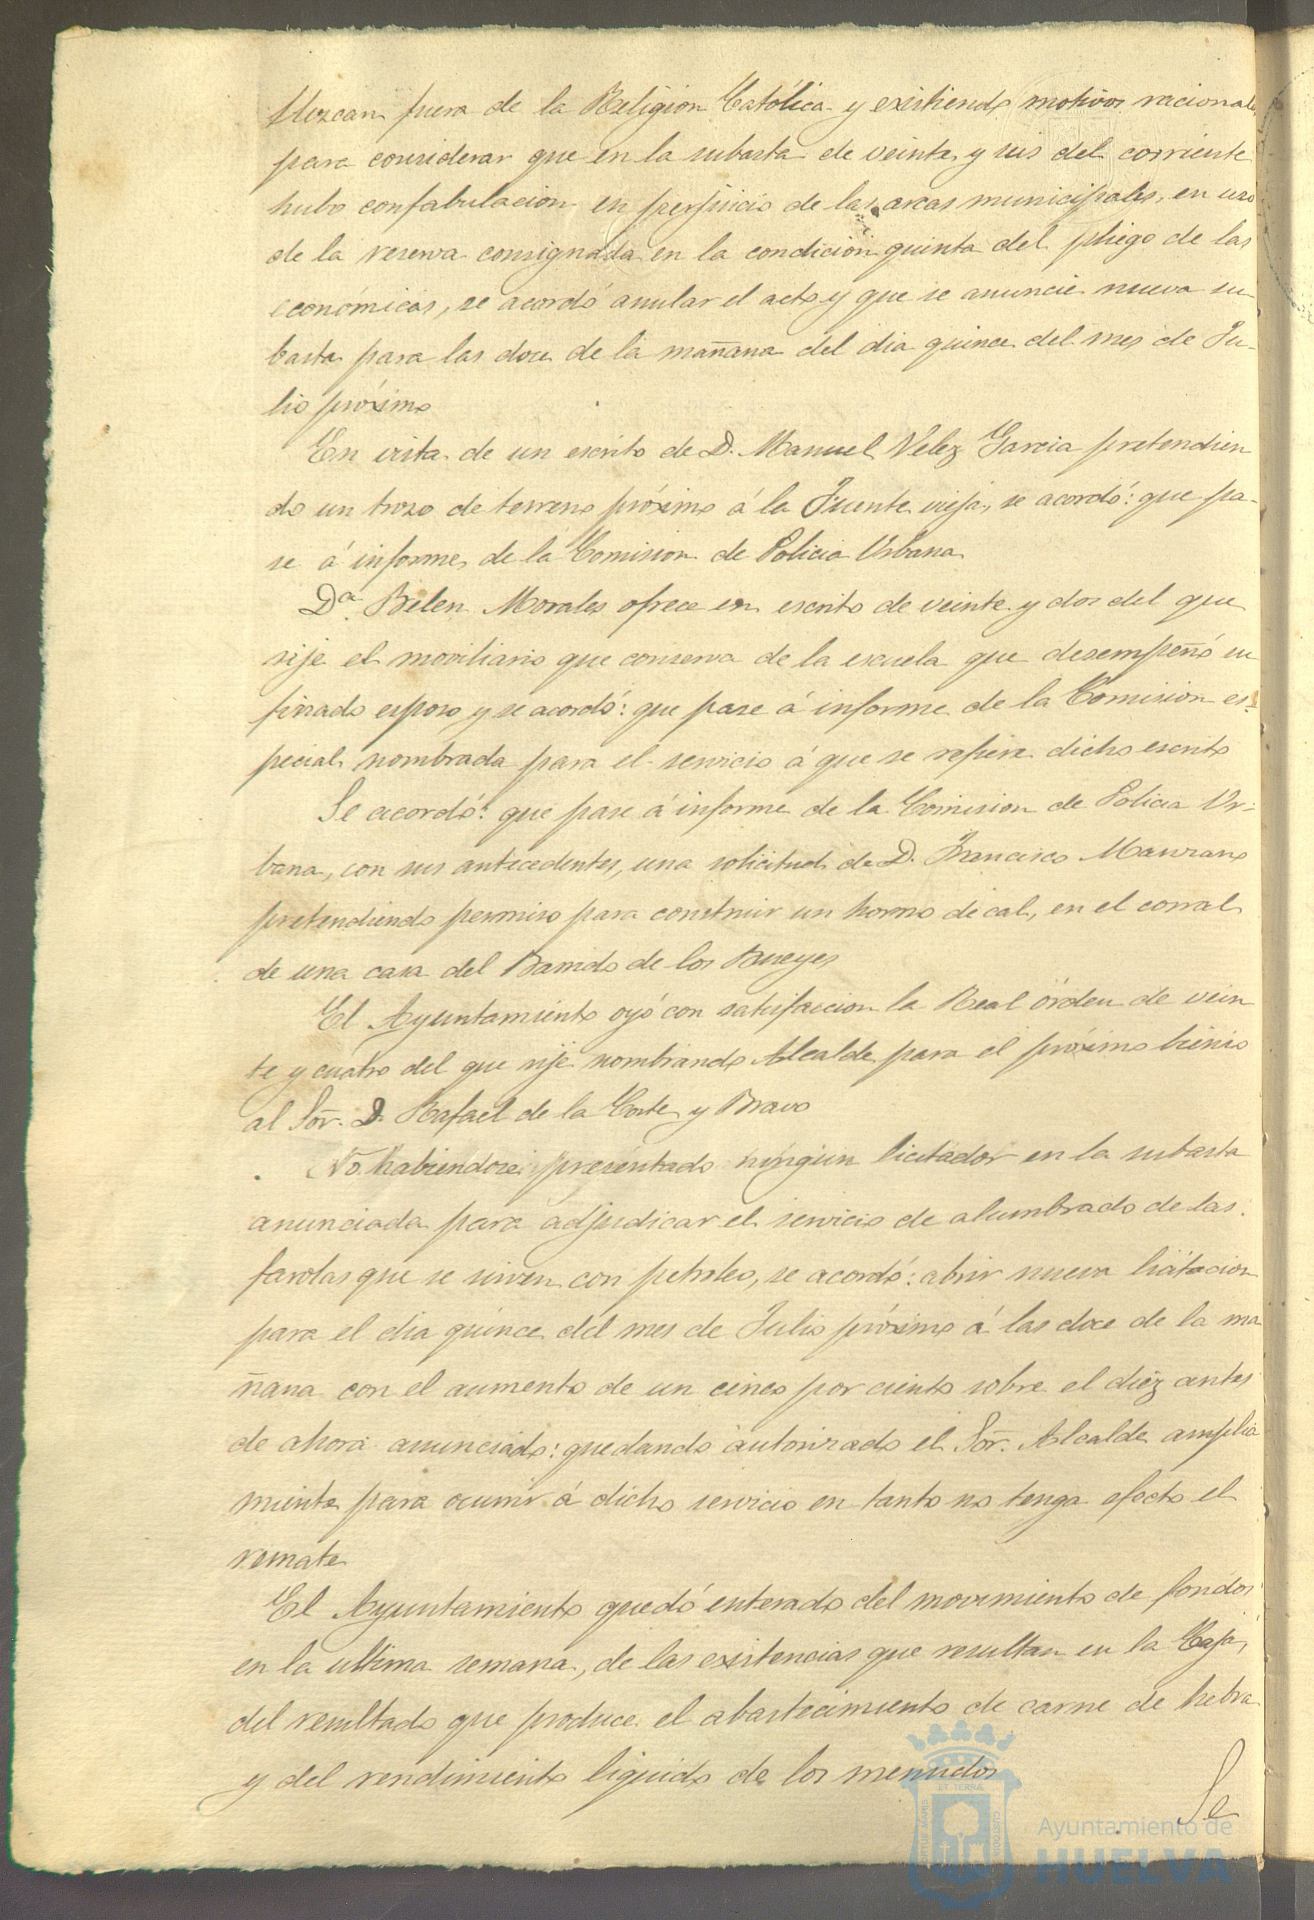 llezcan fuera de la Religion Católica y existiendo motivos racionale
para considerar que en la subasta de veinte y seis del corriente
hubo confabulacion en perjuicio de las arcas municipales, en uso
de la reserva consignada en la condicion quinta del pliego de las
económicas, se acordó anular el acto y que se anuncie nueva su-
basta para las doce de la mañana del dia quince del mes de Ju-
lio próximo
En vista de un escrito de D. Manuel Velez Garcia pretendien
do un trozo de terreno próximo á la Fuente vieja, se acordó: que pa-
se á informe de la Comision de Policia Urbana
Dª Belen Morales ofrece en escrito de veinte y dos del que
rije el moviliario que conserva de la escuela que desempeñó su
finado esposo y se acordó: que pase á informe de la Comision es-
pecial nombrada para el servicio á que se refiere dicho escrito
Se acordó: que pase á informe de la Comision de Policia Ur-
bana, con sus antecedentes, una solicitud de D. Francisco Manzano
pretendiendo permiso para construir un horno de cal, en el corral
de una casa del Barrido de los Bueyes
El Ayuntamiento oyó con satisfaccion la Real órden de vein
te y cuatro del que rije nombrando Alcalde para el próximo bienio
al Sor. D. Rafael de la Corte y Bravo
No habiendose presentado ningun licitador en la subasta
anunciada para adjudicar el servicio de alumbrado de las
farolas que se sirven con petroleo, se acordó: abrir nueva licitacion
para el dia quince del mes de Julio próximo á las doce de la ma
ñana con el aumento de un cinco por ciento sobre el diez antes
de ahora anunciado: quedando autorizado el Sor. Alcalde amplia
mente para ocurrir á dicho servicio en tanto no tenga efecto el
remate
El Ayuntamiento quedó enterado del movimiento de fondos
en la ultima semana, de las existencias que resultan en la Caja,
del resultado que produce el abastecimiento de carne de hebra
y del rendimiento liquido de los menudos
Se
Ayuntamiento de
HUELVA